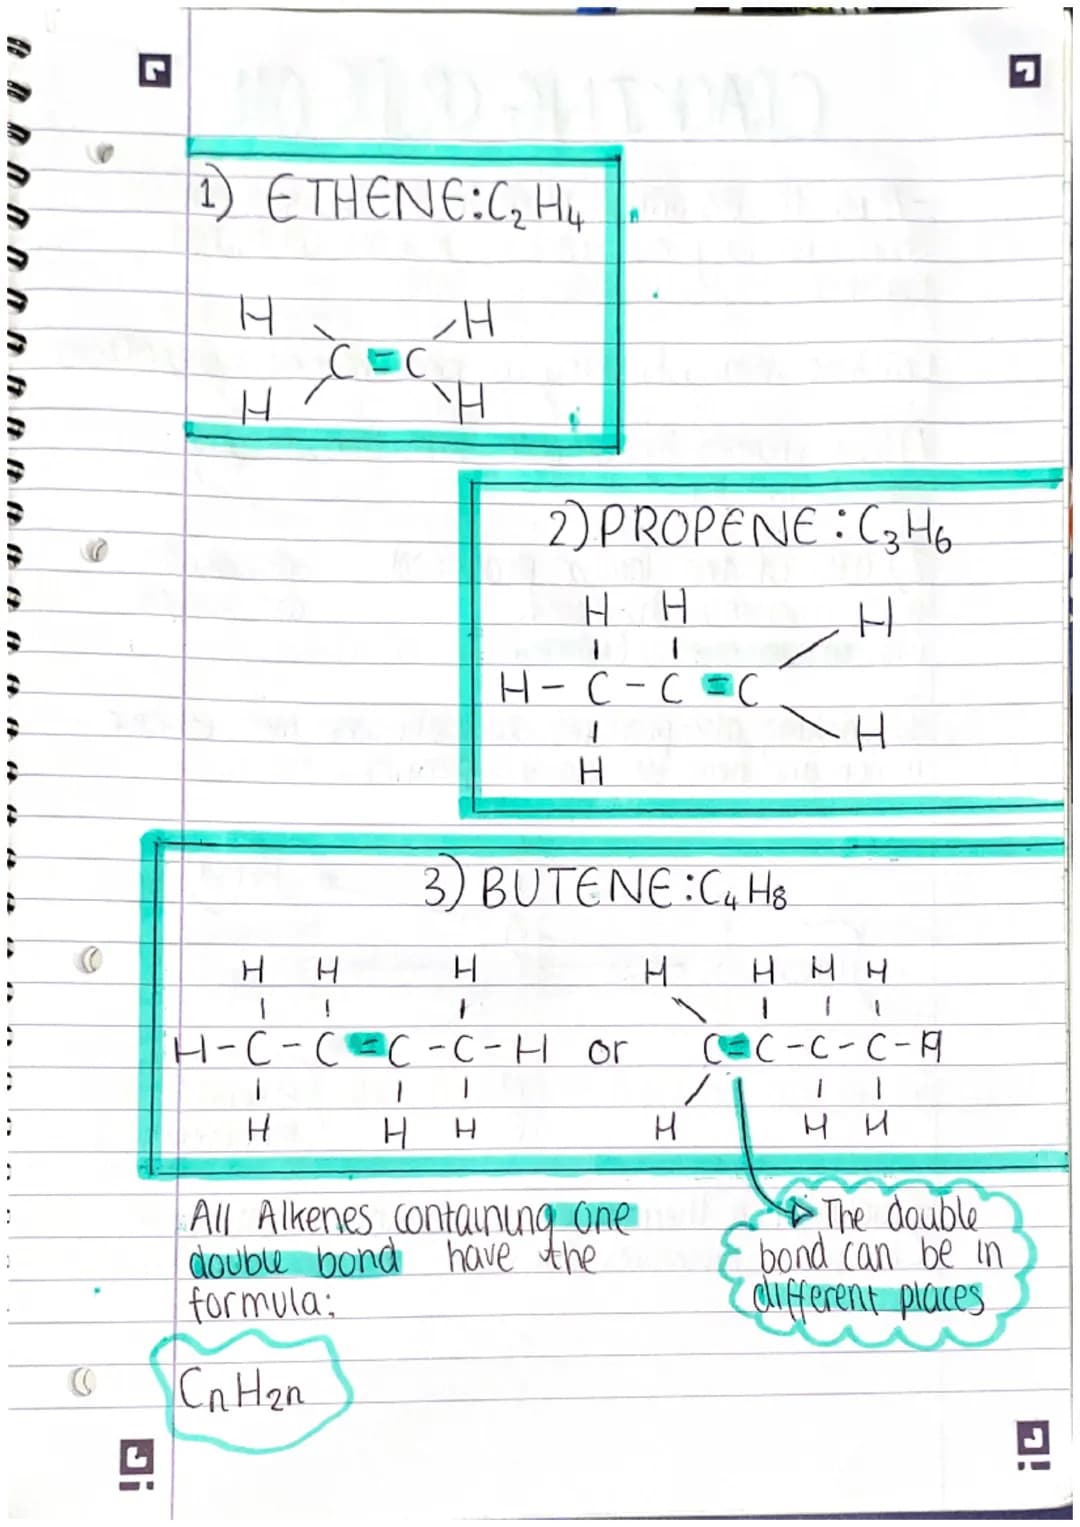 1) ETHENE: C₂H₄
H H
C = C
H H
2) PROPENE : C₃H₆
H H H
H - C - C = C
H H
3) BUTENE : C₄H₈
H H H H H H H
H - C - C = C - C - H or C = C - C - C - H
H H H H H H
All Alkenes containing one
double bond have the
formula:
CnH2n
The double
bond can be in
different places